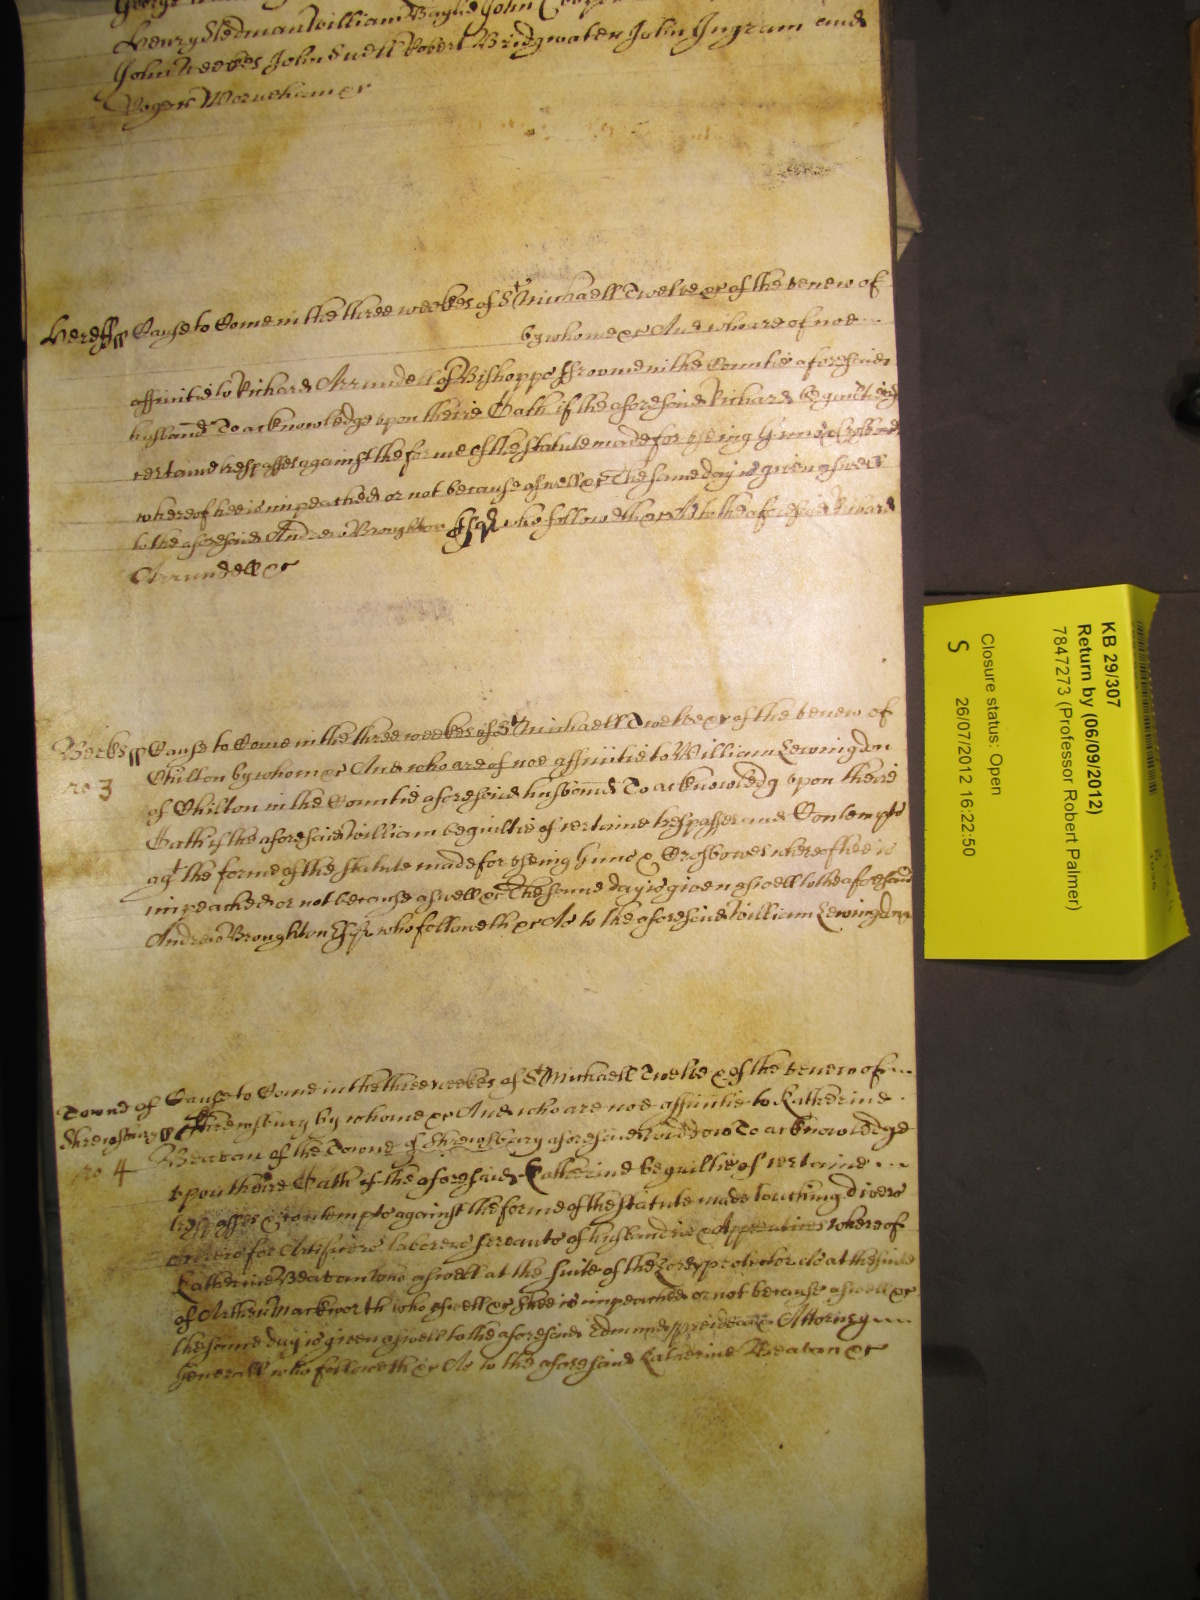 Henry Stedman William Baylie John
John Weekes John Swett Robert Bridgwater John Ingram and
Roger Worneham &c
Hereff ss Cause to Come in the three weekes of St Michaell Twelve &c of the venew of
by whome &c And who are of noe
affinitie to Richard Arrundell of Bishopps Froome in the Countie aforesaid
husband To acknowledge upon theire Oath if the aforesaid Richard be guiltie of
certaine trespasses against the forme of the statute made for useing Gunns & Crosbowes
whereof hee is impeached or not because aswell &c The same day is given aswell
to the aforesaid Andrew Broughton Esqr who followeth &c As to the aforesaid Richard
Arrundell &c
Berks ss Cause to Come in the three weekes of St Michaell Twelve &c of the venew of
ro 3 Chilton by whom &c And who are of noe affinitie to William Lewingdon
of Chilton in the Countie aforesaid husband To acknowledg upon theire
Oath if the aforesaid William be guiltie of certaine trespasses and Contempts
agt the forme of the statute made for useing Gunns & Crosbowes whereof hee is
impeached or not because aswell &c The same day is given aswell to the aforesaid
Andrew Broughton Esqr who followeth &c As to the aforesaid William Lewingdon
Towne of Cause to Come in the three weekes of St Michaell Twelve &c of the venew of
Shrewsbury ss Shrewsbury by whome &c And who are noe affinitie to Katherine
ro 4 Beatan of the Towne of Shrewsbury aforesaid widdow To acknowledge
upon theire Oath if the aforesaid Katherine be guiltie of certaine
trespasses & contempts against the forme of the statute made touching divers
orders for Artificers laborers servants of husbandrie & Apprentices whereof
Katherine Beatan aswell at the suite of the Lord protector as at the suite
of Arthur Mackworth who aswell &c Shee is impeached or not because aswell &c
the same day is given aswell to the aforesaid Edmund Prideaux Attorney
Generall who followeth &c As to the aforesaid Katherine Beatan &c
KB 29/307
Return by (06/09/2012)
7847273 (Professor Robert Palmer)
Closure status: Open
S 26/07/2012 16:22:50